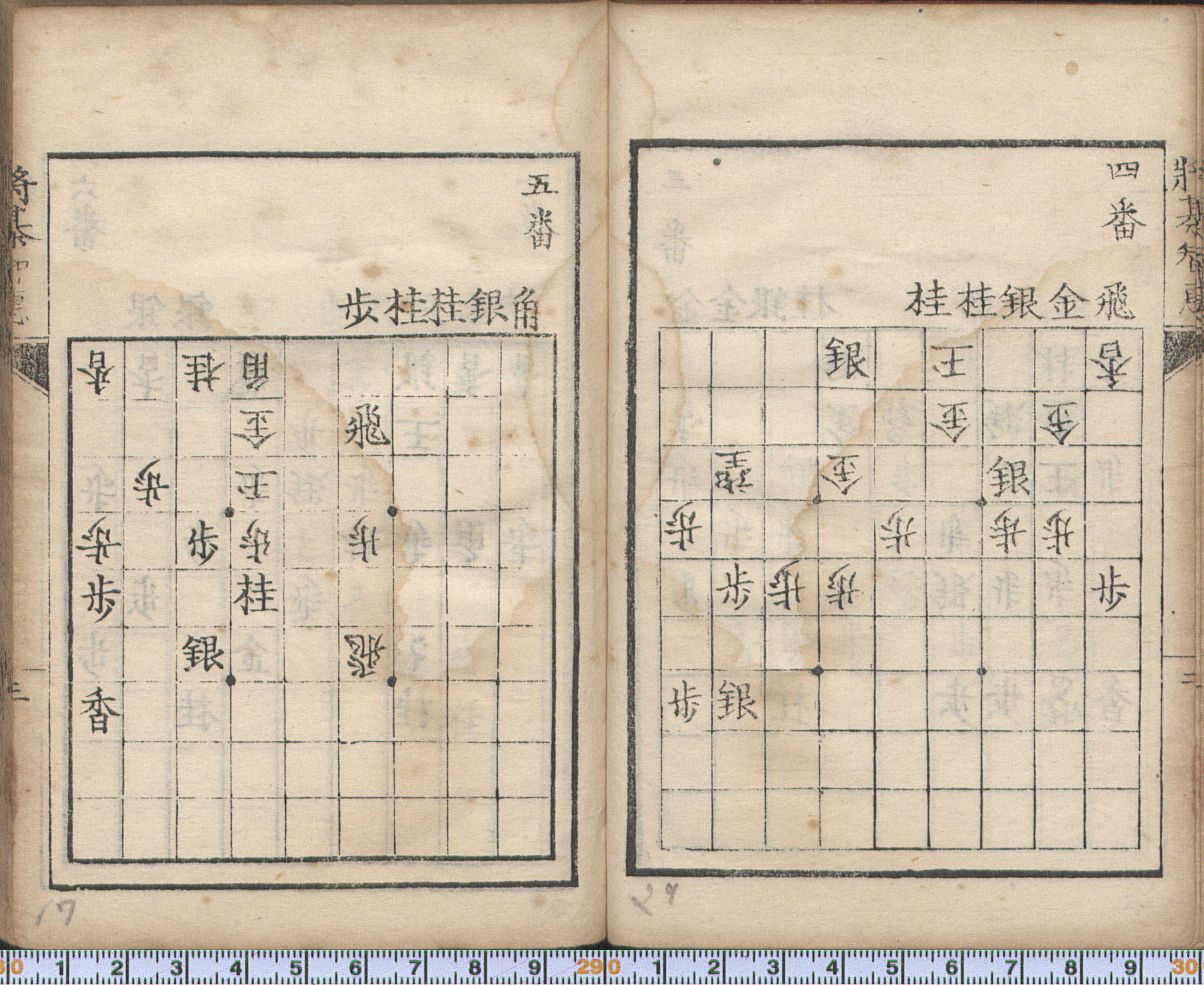 將棊
四番
飛金銀桂桂
香王銀
金金
銀金
歩歩歩歩
歩歩歩歩
銀歩
二
五番
角銀桂桂歩
角桂香
飛金
王歩
歩歩歩歩
桂歩
飛銀
香
將棊
三
17
30 1 2 3 4 5 6 7 8 9 290 1 2 3 4 5 6 7 8 9 30